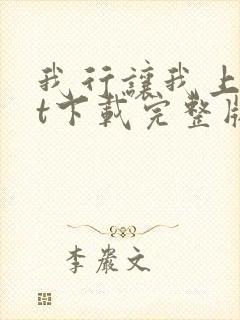 我行讓我上
t下載完整版
李嚴文